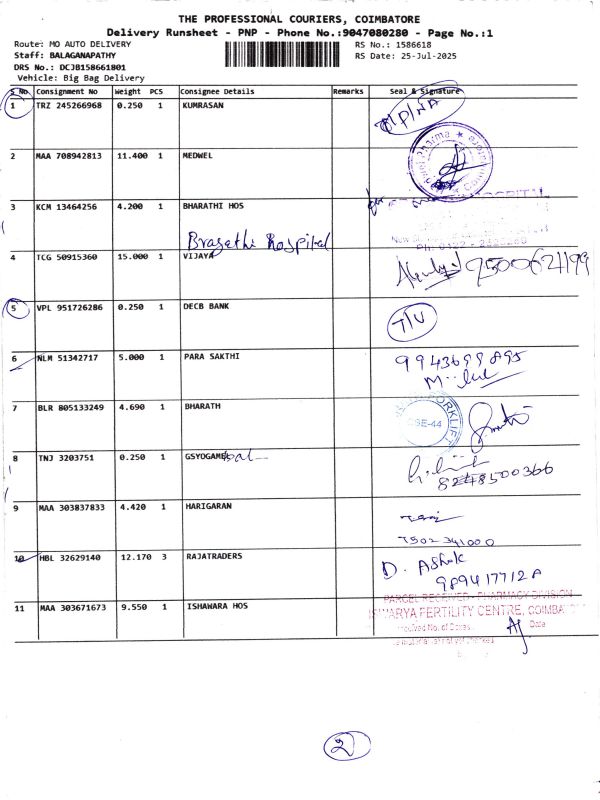 THE PROFESSIONAL COURIERS, COIMBATORE
Delivery Runsheet - PNP - Phone No.:9047080280 - Page No.:1
Route: MO AUTO DELIVERY
RS No.: 1586618
Staff: BALAGANAPATHY
RS Date: 25-Jul-2025
DRS No.: DCJB158661801
Vehicle: Big Bag Delivery
S No. Consignment No Weight PCS Consignee Details Remarks Seal & Signature
1 TRZ 245266968 0.250 1 KUMRASAN
2 MAA 708942813 11.400 1 MEDWEL
3 KCM 13464256 4.200 1 BHARATHI HOS
4 TCG 50915360 15.000 1 VIJAYA 9500621199
5 VPL 951726286 0.250 1 DECB BANK T/U
6 NLM 51342717 5.000 1 PARA SAKTHI 9943699895
7 BLR 805133249 4.690 1 BHARATH
8 TNJ 3203751 0.250 1 GSYOGAM 8248500366
9 MAA 303837833 4.420 1 HARIGARAN
7502341000
10 HBL 32629140 12.170 3 RAJATRADERS D. Ashok
11 MAA 303671673 9.550 1 ISHAWARA HOS
PARCEL RECEIVED - PHARMACY DIVISION
FERTILITY CENTRE, COIMBA
Date
2